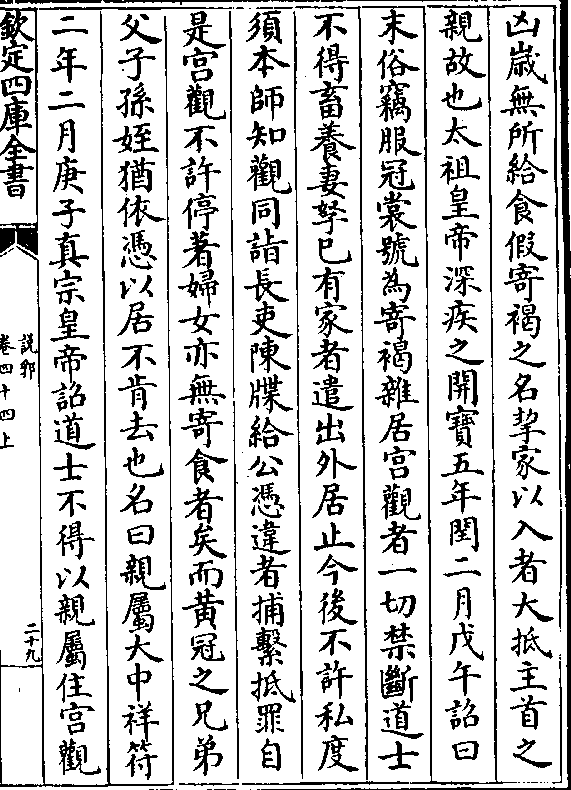 凶歳無所給食假寄褐之名挈家以入者大抵主首之
親故也太祖皇帝深疾之開寶五年閏二月戊午詔曰
末俗竊服冠裳號為寄褐雜居宫觀者一切禁斷道士
不得畜養妻孥已有家者遣出外居止今後不許私度
須本師知觀同詣長吏陳牒給公憑違者捕繫抵罪自
是宫觀不許停著婦女亦無寄食者矣而黄冠之兄弟
父子孫姪猶依憑以居不肯去也名曰親屬大中祥符
二年二月庚子真宗皇帝詔道士不得以親屬住宫觀
欽定四庫全書
說郛
卷四十四上
二十九